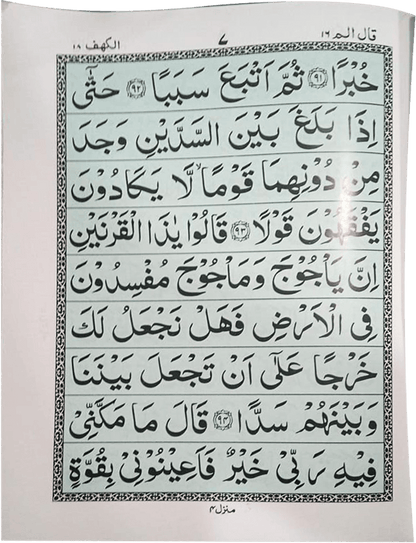 قال الم ١٦ ٧ الكهف ١٨
خُبْرًا ﴿٩١﴾ ثُمَّ اَتْبَعَ سَبَبًا ﴿٩٢﴾ حَتّٰى
اِذَا بَلَغَ بَيْنَ السَّدَّيْنِ وَجَدَ
مِنْ دُوْنِهِمَا قَوْمًا ۙ لَّا يَكَادُوْنَ
يَفْقَهُوْنَ قَوْلًا ﴿٩٣﴾ قَالُوْا يٰذَا الْقَرْنَيْنِ
اِنَّ يَاْجُوْجَ وَمَاْجُوْجَ مُفْسِدُوْنَ
فِى الْاَرْضِ فَهَلْ نَجْعَلُ لَكَ
خَرْجًا عَلٰٓى اَنْ تَجْعَلَ بَيْنَنَا
وَبَيْنَهُمْ سَدًّا ﴿٩٤﴾ قَالَ مَا مَكَّنِّىْ
فِيْهِ رَبِّىْ خَيْرٌ فَاَعِيْنُوْنِىْ بِقُوَّةٍ
منزل ٤